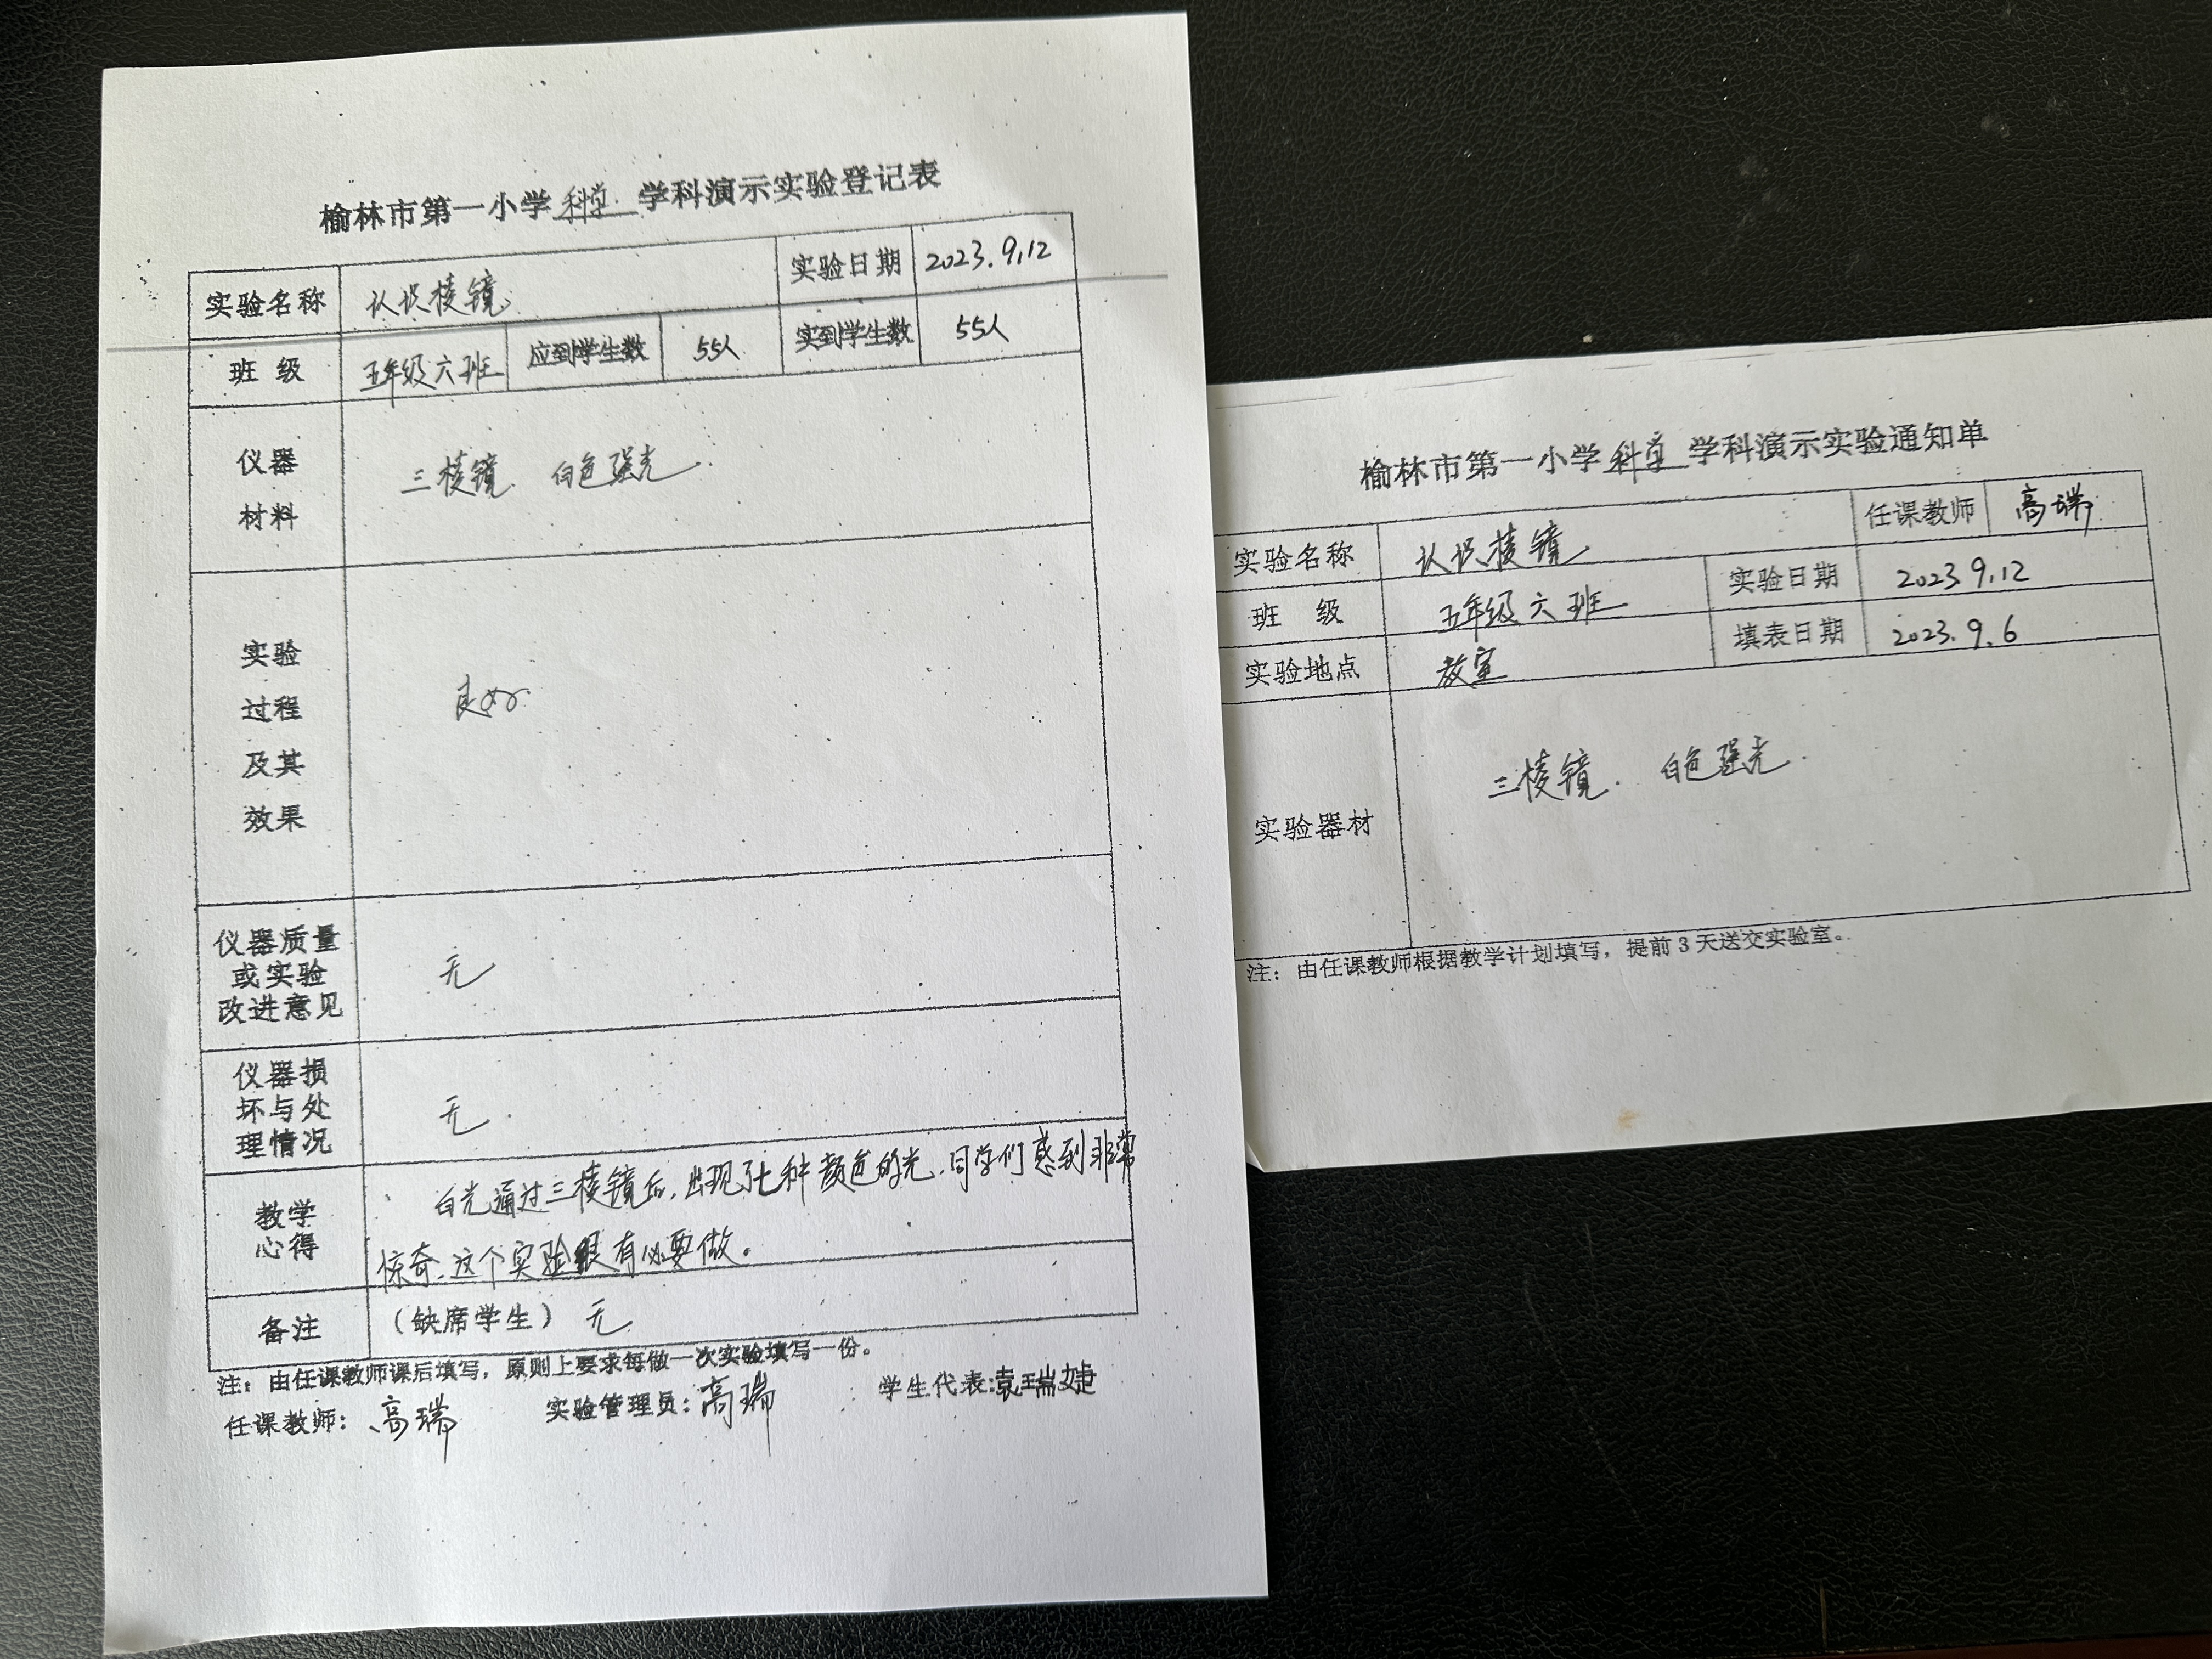 榆林市第一小学 科学 学科演示实验登记表
实验名称 认识棱镜 实验日期 2023.9.12
班 级 五年级六班 应到学生数 55人 实到学生数 55人
仪器
材料
三棱镜 白色强光.
实验
过程
及其
效果
良好.
仪器质量
或实验
改进意见
无
仪器损
坏与处
理情况
无.
教学
心得
白光通过三棱镜后,出现了七种颜色的光.同学们感到非常
惊奇.这个实验很有必要做。
备注 (缺席学生) 无
注:由任课教师课后填写,原则上要求每做一次实验填写一份。
任课教师: 高瑞 实验管理员: 高瑞 学生代表:袁瑞婕
榆林市第一小学 科学 学科演示实验通知单
实验名称 认识棱镜 任课教师 高瑞
班 级 五年级六班 实验日期 2023.9.12
实验地点 教室 填表日期 2023.9.6
实验器材 三棱镜. 白色强光.
注:由任课教师根据教学计划填写,提前3天送交实验室。